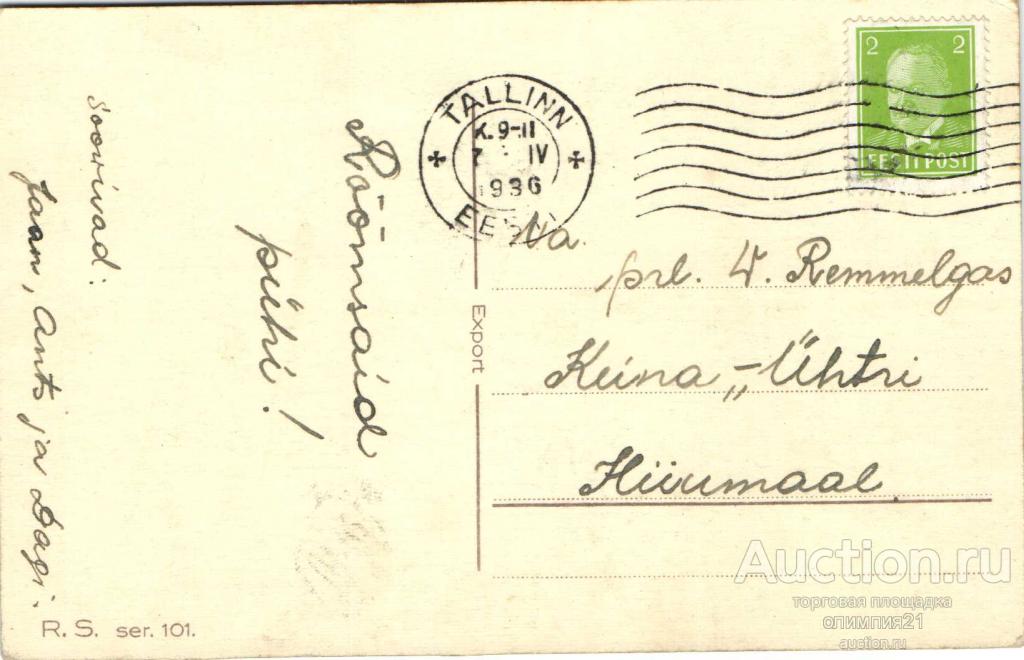 Rõõmsaid
pühi!
Soovivad:
Jaan, Ants ja Dagi.
R. S. ser. 101.
Export
TALLINN
K. 9-11
IV
1936
EESTI
2 2
EESTI POST
Va.
prl. W. Remmelgas
Keina „Ühtri
Hiiumaal
Auction.ru
торговая площадка
олимпия21
auction.ru